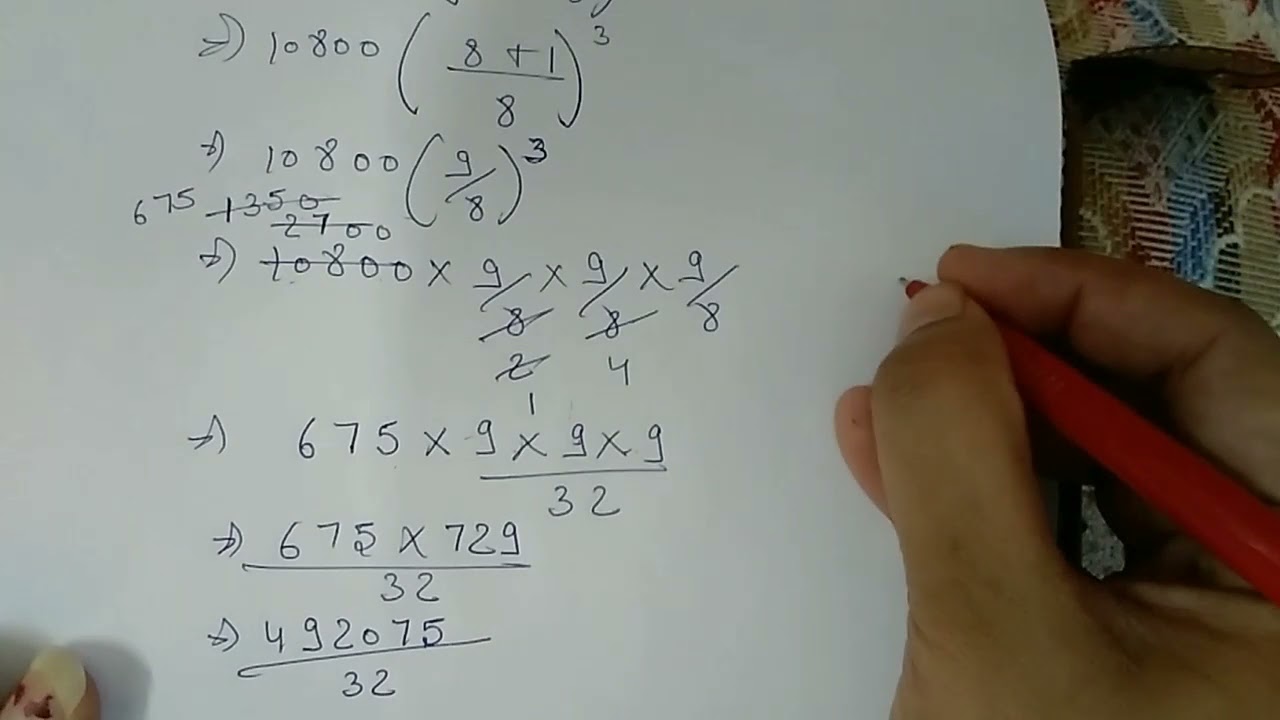 ⇒) 10800 ( 8 + 1 / 8 )³
⇒) 10800 ( 9/8 )³
675 1350
2700
⇒) 10800 × 9/8 × 9/8 × 9/8
2 4
1
⇒) 675 × 9 × 9 × 9 / 32
⇒) 675 × 729 / 32
⇒) 492075 / 32